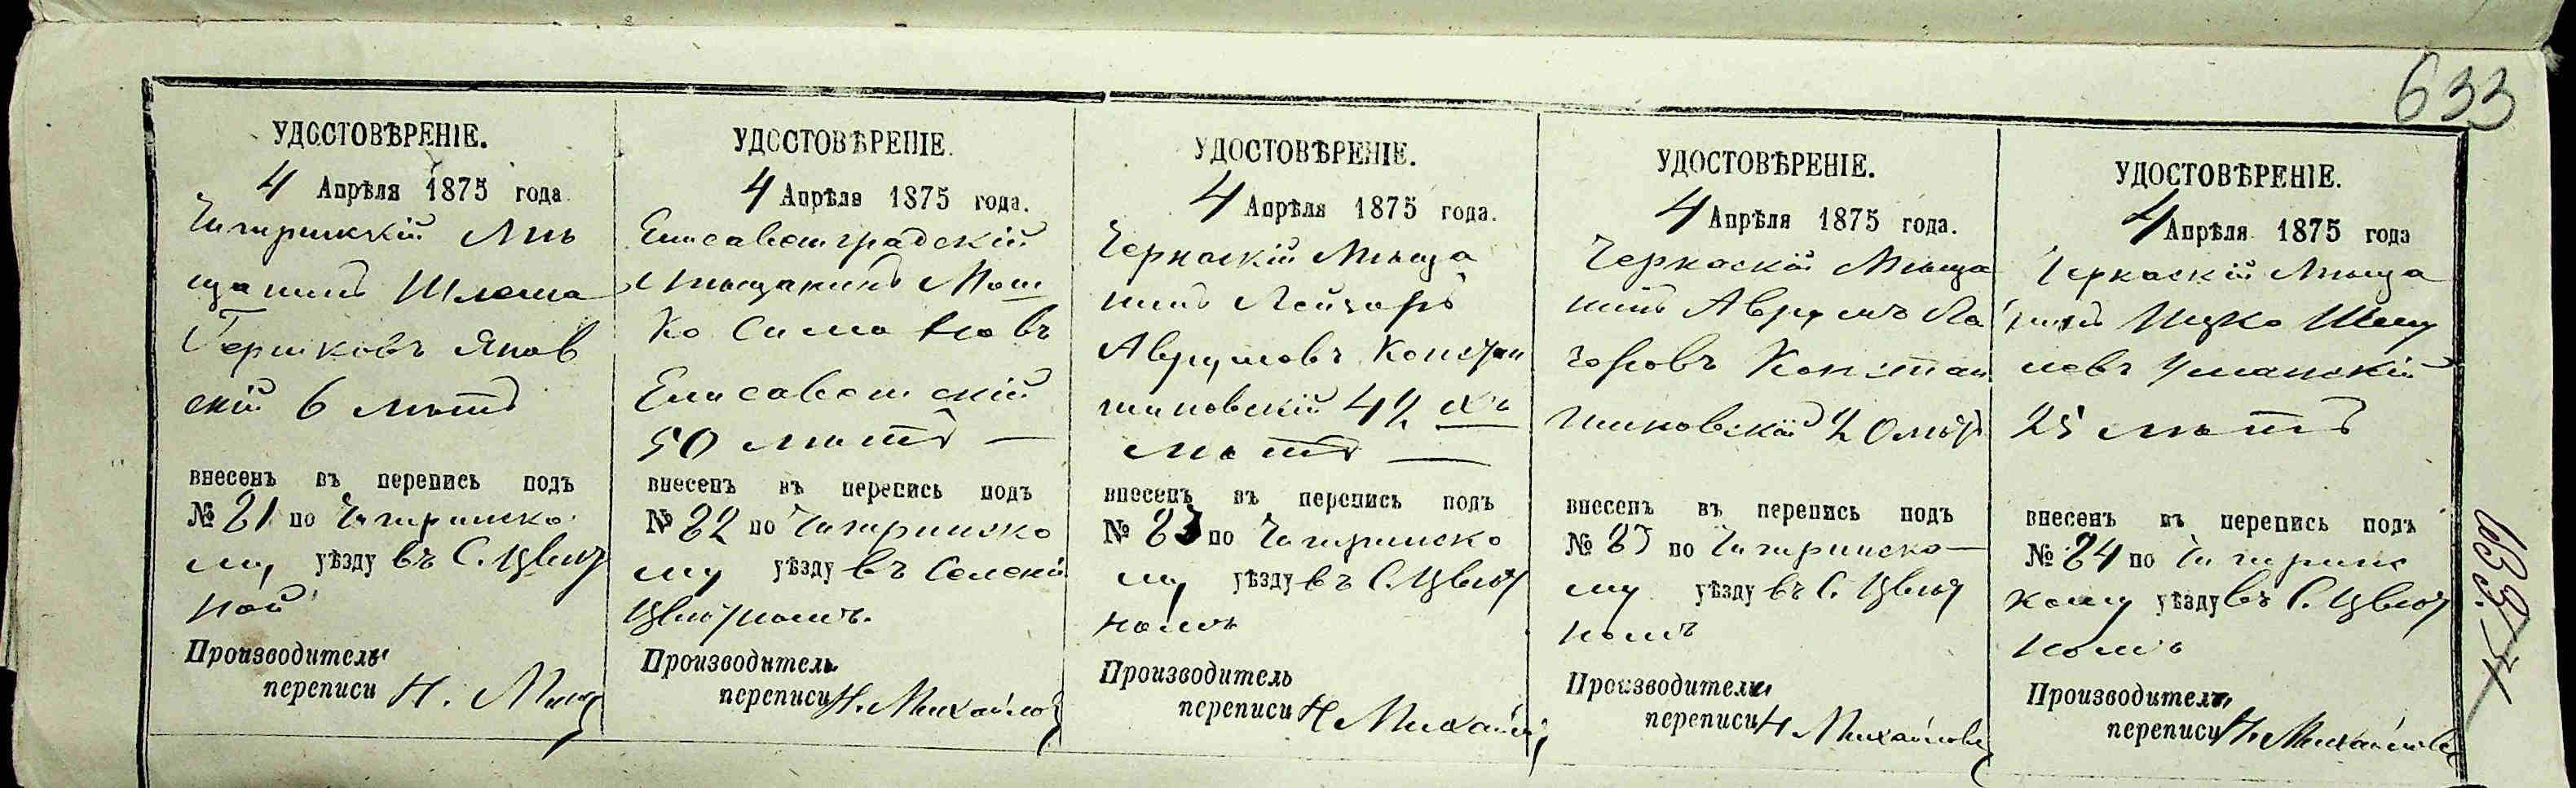 633
УДОСТОВѢРЕНІЕ.
4 Апрѣля 1875 года
Чигиринскій Мѣ
щанинъ Шлема
Гершковъ Янов
скій 6 лѣтъ
внесенъ въ перепись подъ
№ 21 по Чигиринско
му уѣзду въ С. Цвѣт
ной
Производитель
переписи Н. Мих
УДОСТОВѢРЕНІЕ.
4 Апрѣля 1875 года.
Елисаветградскій
мѣщанинъ Мош
ко Симо въ
Елисаветскій
50 лѣтъ —
внесенъ въ перепись подъ
№ 22 по Чигиринско
му уѣзду въ Селеніи
Цвѣтномъ.
Производитель
переписи Н. Михайлов
УДОСТОВѢРЕНІЕ.
4 Апрѣля 1875 года.
Черкаскій Мѣща
нинъ Лейзоръ
Аврумовъ Констан
тиновскій 42 хъ
лѣтъ —
внесенъ въ перепись подъ
№ 23 по Чигиринско
му уѣзду въ С. Цвѣт
номъ
Производитель
переписи Н Михайл
УДОСТОВѢРЕНІЕ.
4 Апрѣля 1875 года.
Черкаскій Мѣща
нинъ Аврумъ Ла
зоровъ Констан
тиновскій 20 лѣт
внесенъ въ перепись подъ
№ по Чигиринско—
му уѣзду въ С. Цвѣт
номъ
Производитель
переписи Н. Михайловъ
УДОСТОВѢРЕНІЕ.
4 Апрѣля 1875 года
Черкаскій Мѣща
нинъ Ицко Шму
левъ Уманскій
25 лѣтъ
внесенъ въ перепись подъ
№ 24 по Чигиринс
кому уѣзду въ С. Цвѣт
номъ
Производитель
переписи Н. Михайловъ
633.